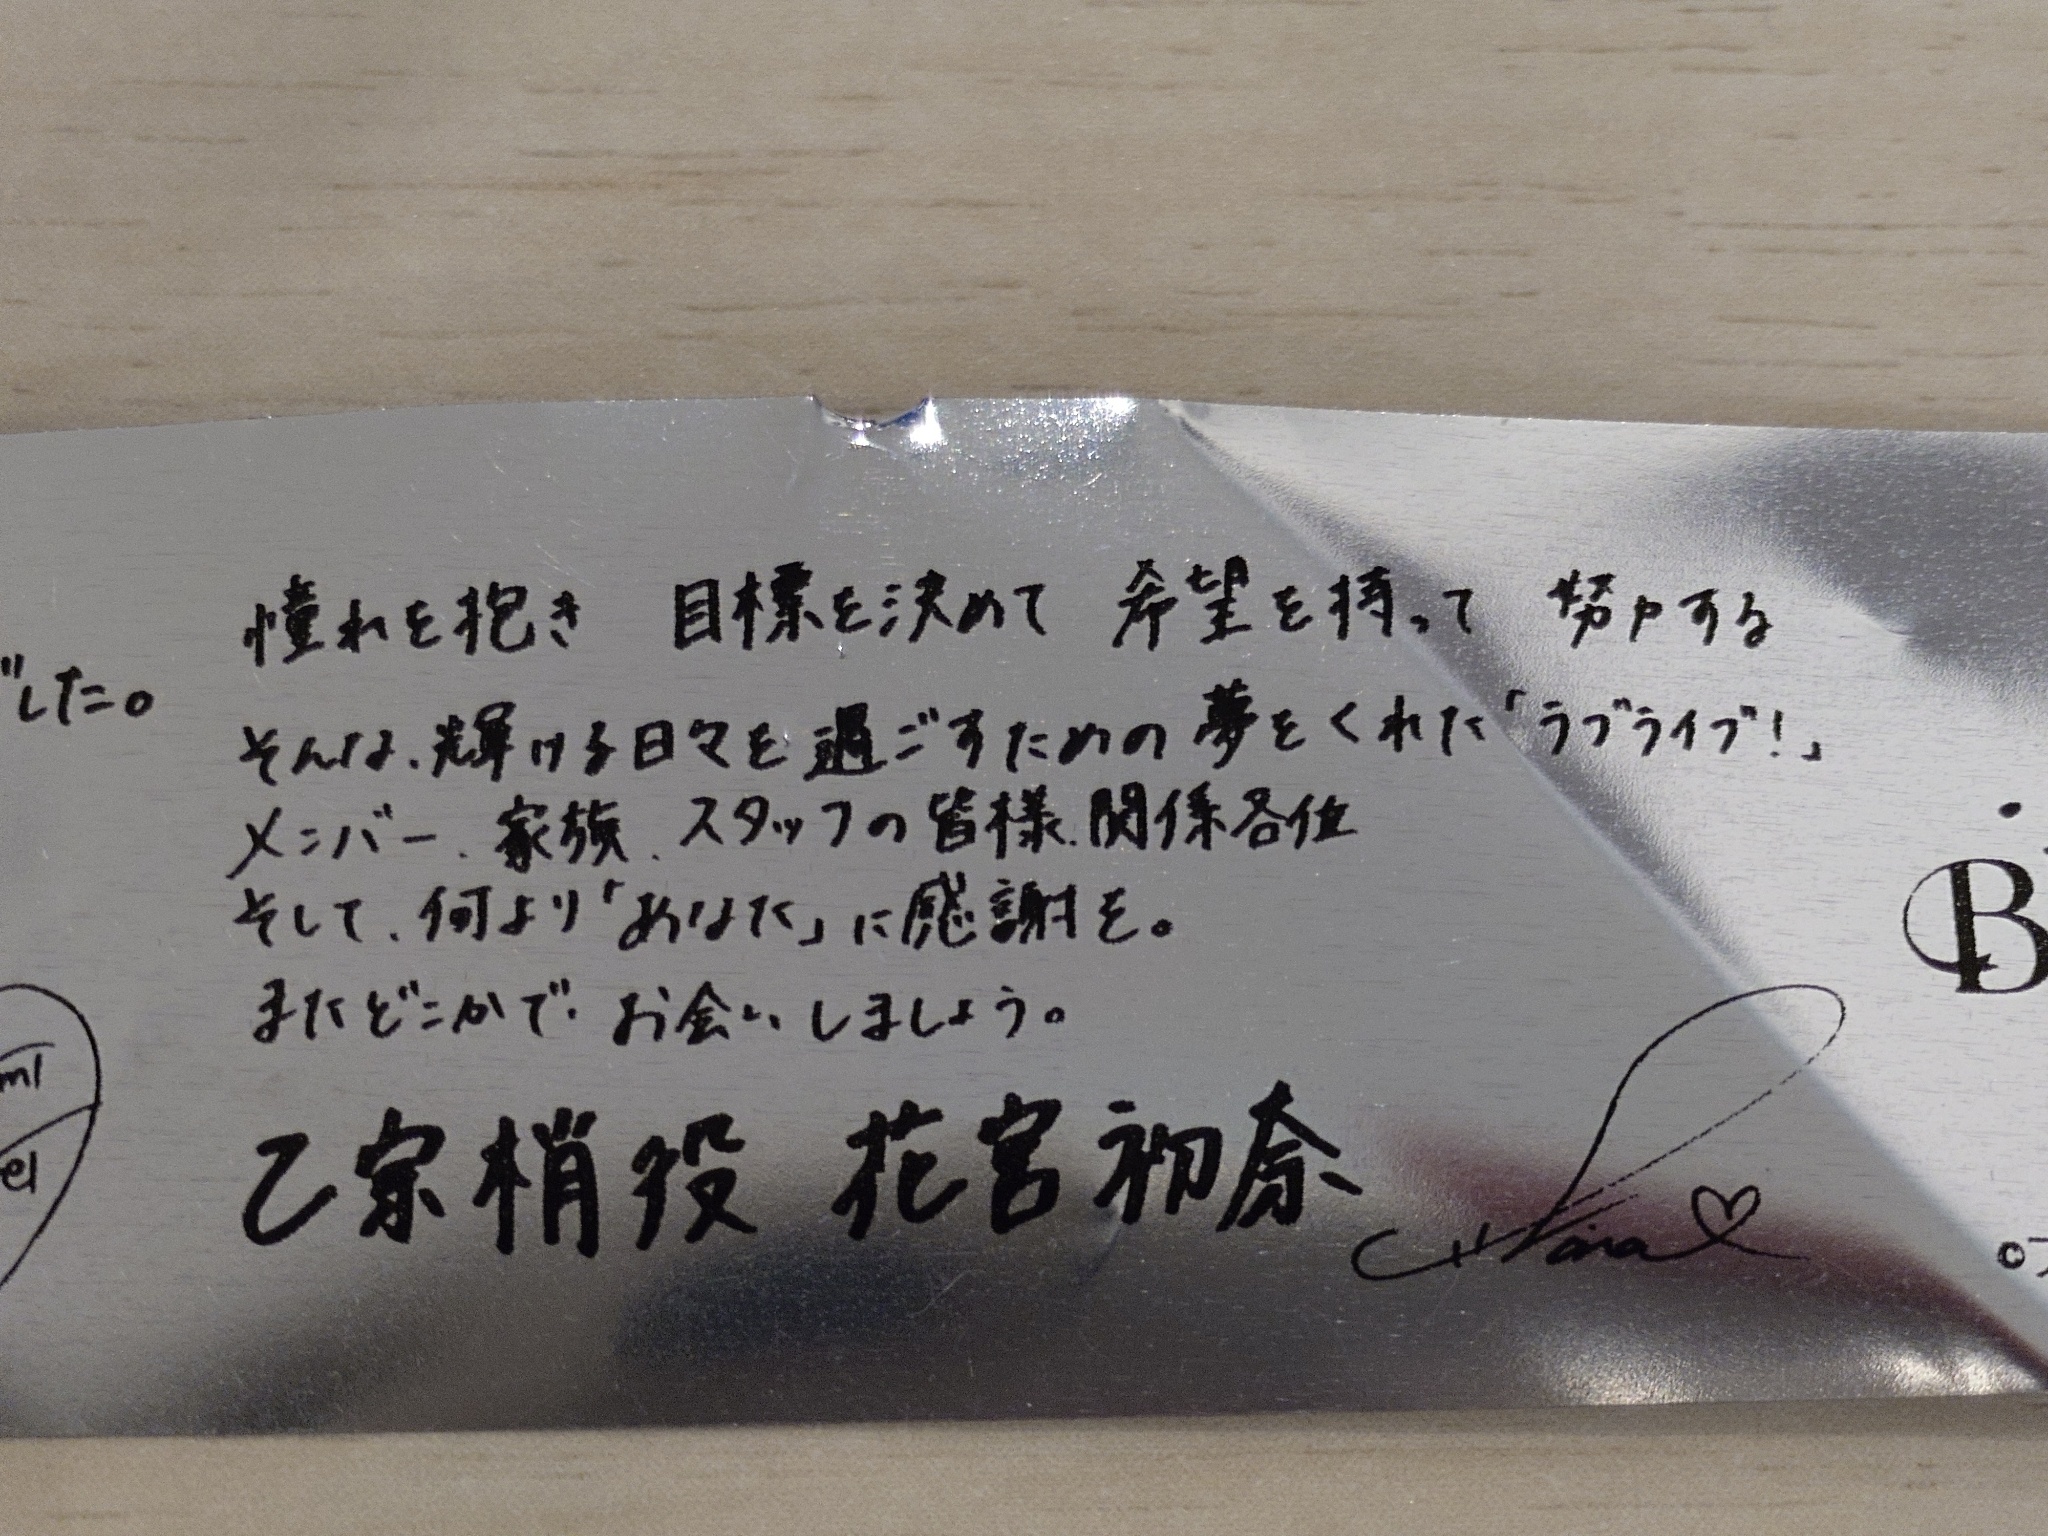 憧れを抱き 目標を決めて 希望を持って 努力する
そんな、輝ける日々を過ごすための夢をくれた「ラブライブ!」
メンバー、家族、スタッフの皆様、関係各位
そして、何より「あなた」に感謝を。
またどこかで、お会いしましょう。
乙宗梢役 花宮初奈
Hina
でした。
mi
ei
B
©プ